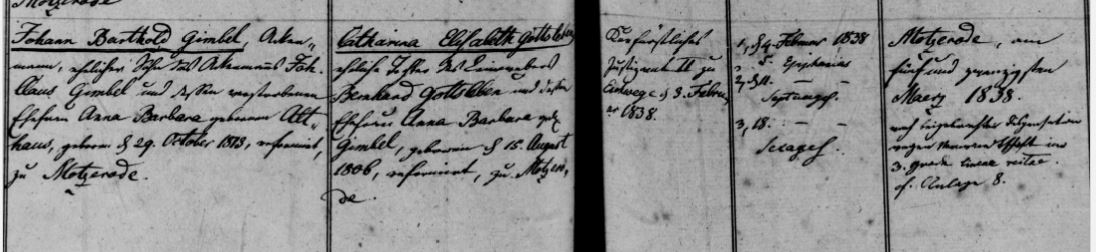 Motzerode
Johann Barthold Gimbel, Acker„
mann, ehelicher Sohn des Ackermanns Joh.
Claus Gimbel und dessen verstorbenen
Ehefrau Anna Barbara geborenen Alt„
haus, geboren d 29. October 1813, reformirt,
zu Motzerode.
Catharina Elisabeth Gottsleben
eheliche Tochter des Einwohners
Bernhard Gottsleben und dessen
Ehefrau Anna Barbara geb.
Gimbel, geboren d 15. August
1806, reformirt, zu Motzero„
de.
Kurfürstliches
Justizamt II zu
Eschwege d 3. Febru„
ar 1838.
1, d 4. Februar 1838
5. Epiphanias
2, d 11. — —
Septuages.
3, 18. — —
Sexages.
Motzerode, am
fünf und zwanzigsten
Maerz 1838.
nach beigebrachter Dispensation
wegen Verwandtschaft im
3. grade lineae
cf. Anlage 8.